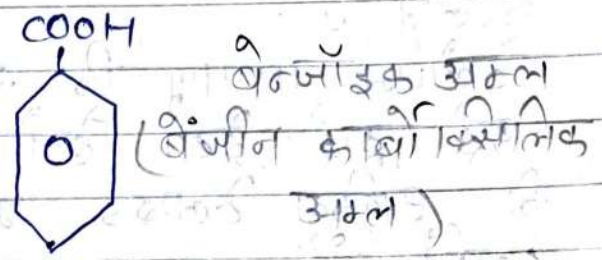 COOH
बेन्जॉइक अम्ल
(बेंजीन कार्बोक्सिलिक
अम्ल)